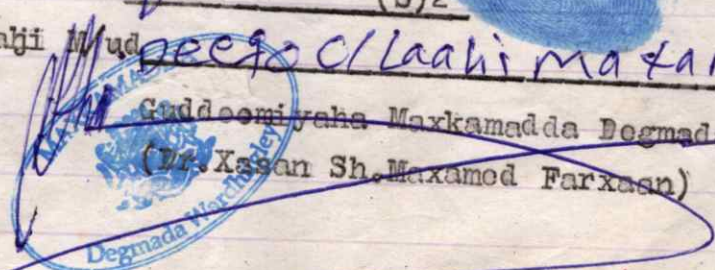 (B)2
deeqo C/Laahi Maxa
Guddoomiyaha Maxkamadda Degmad
(Dr.Xasan Sh.Maxamed Farxaan)
Degmada Wardhiigley